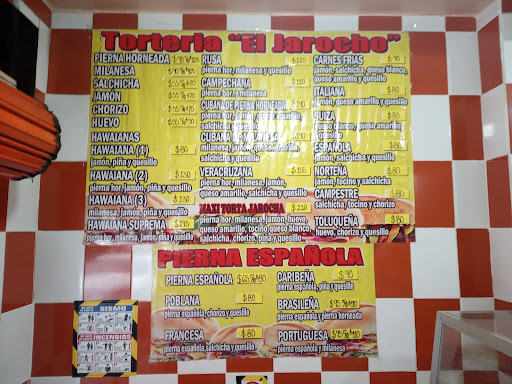 Tortería "El Jarocho"
PIERNA HORNEADA
MILANESA
SALCHICHA
JAMÓN
CHORIZO
HUEVO
HAWAIANAS
HAWAIANA (1) $80
jamón, piña y quesillo
HAWAIANA (2) $130
pierna hor, jamón, piña y quesillo
HAWAIANA (3) $130
milanesa, jamón, piña y quesillo
HAWAIANA SUPREMA
pierna hor, milanesa, jamón, piña y quesillo
RUSA
pierna hor, milanesa y quesillo
CAMPECHANA
pierna hor, y milanesa
CUBANA DE PIERNA HORNEADA
pierna hor, jamón, queso amarillo,
salchicha y quesillo
CUBANA DE MILANESA
milanesa, jamón, queso amarillo,
salchicha y quesillo
VERACRUZANA
pierna hor, milanesa, jamón,
queso amarillo, salchicha y quesillo
MAXI TORTA JAROCHA $220
pierna hor, milanesa, jamón, huevo,
queso amarillo, tocino, queso blanco,
salchicha, chorizo, piña y quesillo
CARNES FRIAS $90
jamón, salchicha, queso blanco,
queso amarillo y quesillo
ITALIANA $80
jamón, queso amarillo y quesillo
SUIZA $80
queso blanco, queso amarillo
y quesillo
ESPAÑOLA $80
jamón, chorizo y quesillo
NORTEÑA $80
jamón, tocino y salchicha
CAMPESTRE $80
salchicha, tocino y chorizo
TOLUQUEÑA $80
huevo, chorizo y quesillo
PIERNA ESPAÑOLA
PIERNA ESPAÑOLA
POBLANA $80
pierna española, chorizo y quesillo
FRANCESA $80
pierna española, salchicha y quesillo
CARIBEÑA $90
pierna española, piña y quesillo
BRASILEÑA
pierna española y pierna horneada
PORTUGUESA
pierna española y milanesa
SISMO
INCENDIOS